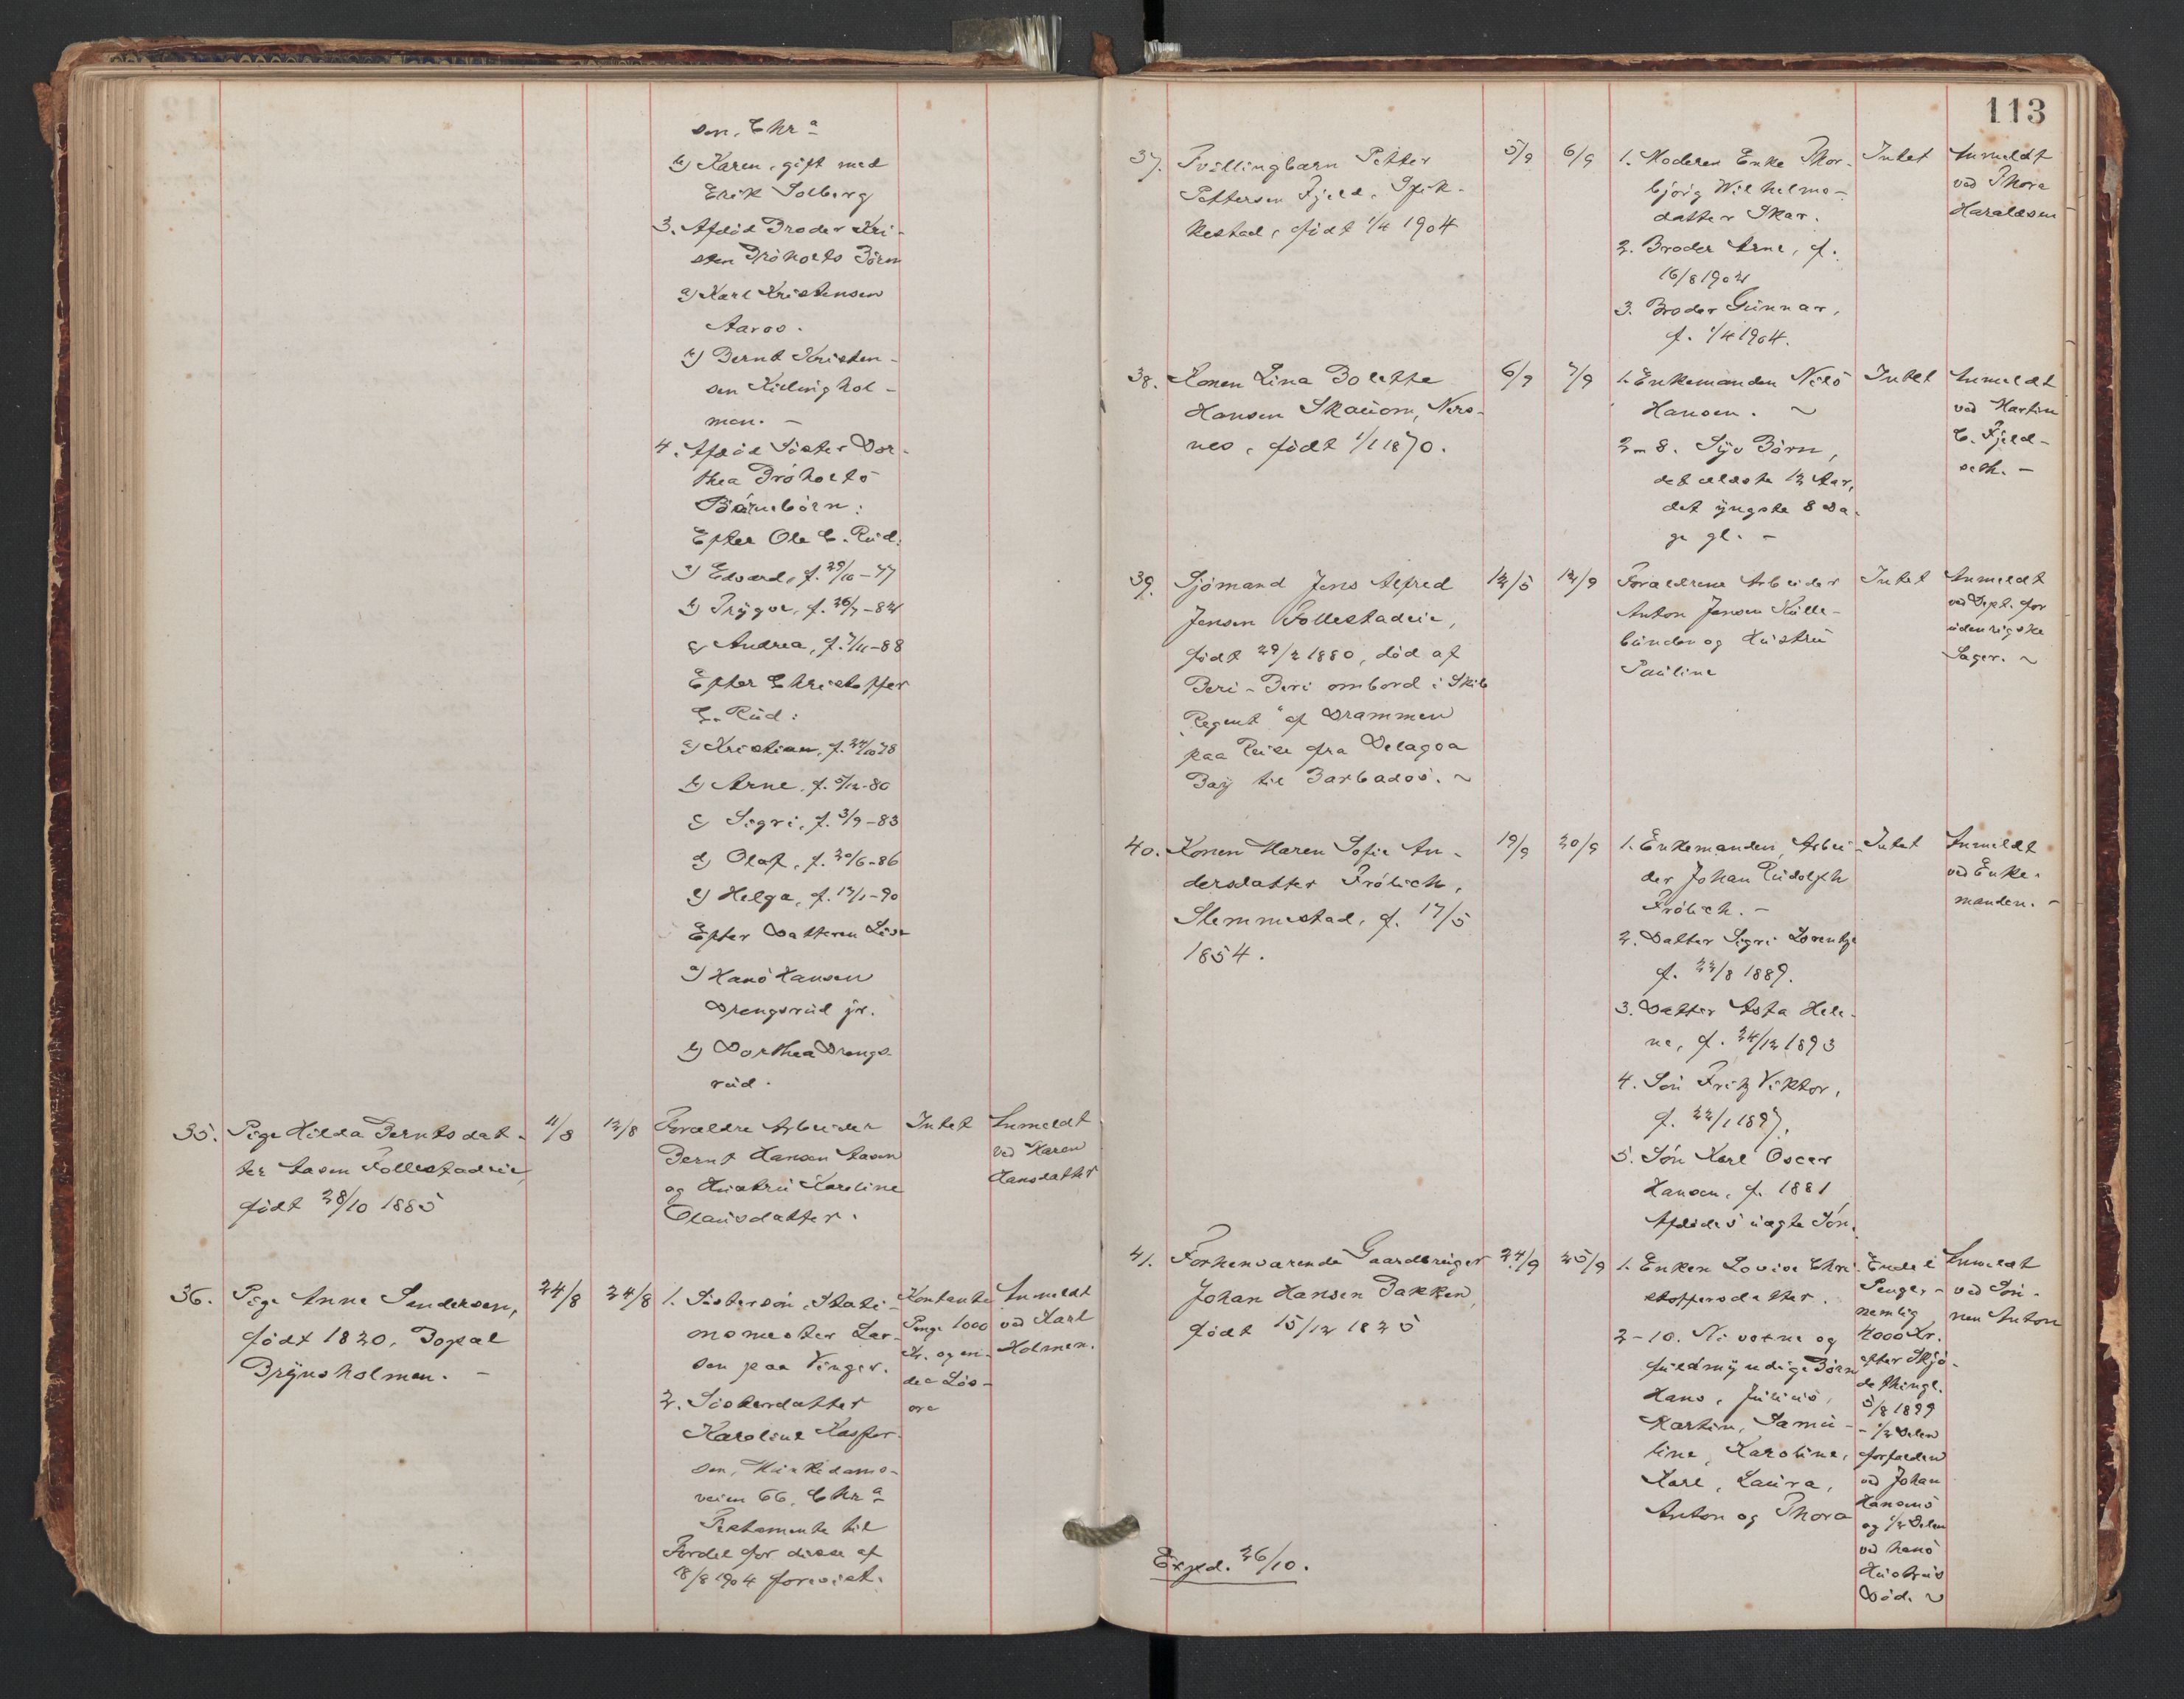 sen, Chr a
b) Karen, gift med
Erik Solberg
3. Afdød Broder Kri-
sten Bröholts Börn
a) Karl Kristensen
Aaros.
b) Bernt Kristen-
sen Killinghol-
men. -
4. Afdöd Söster Dor-
thea Bröholts
Börnebörn:
Efter Ole C. Rud:
a) Edvard, f. 29/10-77
b) Trygve, f. 26/7-82
c) Andrea, f. 7/11-88
Efter Christoffer
C. Rud:
a) Kristian, f. 24/10 78
b) Arne, f. 5/12-80
c) Sigri, f. 3/9-83
d) Olaf, f. 20/6-86
e) Helga, f. 12/1-90
Efter Datteren Lise
a) Hans Hansen
Drengsrud jr.
b) Dorthea Drengs-
rud.
35. Pige Hilda Berntsdat-
ter Aasen Follestadeie,
födt 28/10 1885
11/8
12/8
Forældre Arbeider
Bernt Hansen Aasen
og Hustru Karoline
Olausdatter.
Intet
Anmeldt
ved Karen
Hansdatter
36. Pige Anne Sandersen,
födt 1820, Bopæl
Brynsholmen. -
24/8
24/8
1. Söstersön, Stati-
onsmester Lar-
sen paa Vinger.
2. Sösterdatter
Karoline Kasper-
sen, Munkedams-
veien 66, Chr a
Testamente til
Fordel for disse af
18/8 1904 forevist.
Kontante
Penge 1000
Kr. og en-
del Lös-
öre
Anmeldt
ved Karl
Holmen.
113
37. Tvillingbarn Petter
Pettersen Fjeld, Spik-
kestad, födt 1/4 1904
5/9
6/9
1. Moderen Enke Thor-
björg Wilhelms-
datter Skar.
2. Broder Arne, f.
16/8 1902
3. Broder Gunnar,
f. 1/4 1904.
Intet
Anmeldt
ved Thora
Haraldsen
38. Konen Lina Bolette
Hansen Skauom, Ners-
nes, födt 1/1 1870.
6/9
7/9
1. Enkemanden Nils
Hansen. ~
2-8. Syv Börn,
det ældste 12 Aar,
det yngste 8 Da-
ge gl. -
Intet
Anmeldt
ved Martin
C. Fjeld-
seth. -
39. Sjömand Jens Alfred
Jensen Follestadeie,
födt 29/2 1880, död af
Beri-Beri ombord i Skib
"Regent" af Drammen
paa Reise fra Delagoa
Bay til Barbados. ~
12/5
12/9
Forældrene Arbeider
Anton Jensen Kulle-
bunden og Hustru
Pauline
Intet
Anmeldt
ved Dept. for
udenrigske
Sager. ~
40. Konen Maren Sofie An-
dersdatter Frölich,
Slemmestad, f. 17/5
1854.
19/9
20/9
1. Enkemanden, Arbei-
der Johan Rudolph
Frölich. -
2. Datter Sigri Lorentze
f. 22/8 1889.
3. Datter Asta Hele-
ne, f. 24/12 1893
4. Sön Fritz Viktor,
f. 22/1 1897.
5. Sön Karl Oscar
Hansen, f. 1881
Afdödes uægte Sön.
Intet
Anmeldt
ved Enke-
manden. -
41. Forhenværende Gaardbruger
Johan Hansen Bakken,
födt 15/12 1825
24/9
25/9
1. Enken Lovise Chri-
stoffersdatter.
2-10. Ni voxne og
fuldmyndige Börn
Hans, Julius,
Martin, Samu-
line, Karoline,
Karl, Laura,
Anton og Thora
Endel
Penger -
nemlig
4000 Kr.
efter Skjö-
de thingl.
5/8 1899
- 1/2 Delen
forfalden
ved Johan
Hansens
og 1/2 Delen
ved hans
Hustrus
Död. ~
Anmeldt
ved Sön-
nen Anton
Exped. 26/10.